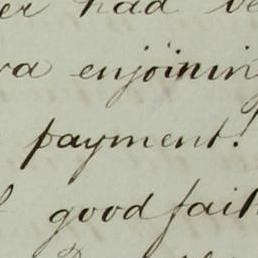 er had be
va enjoinin
payment!
good fait